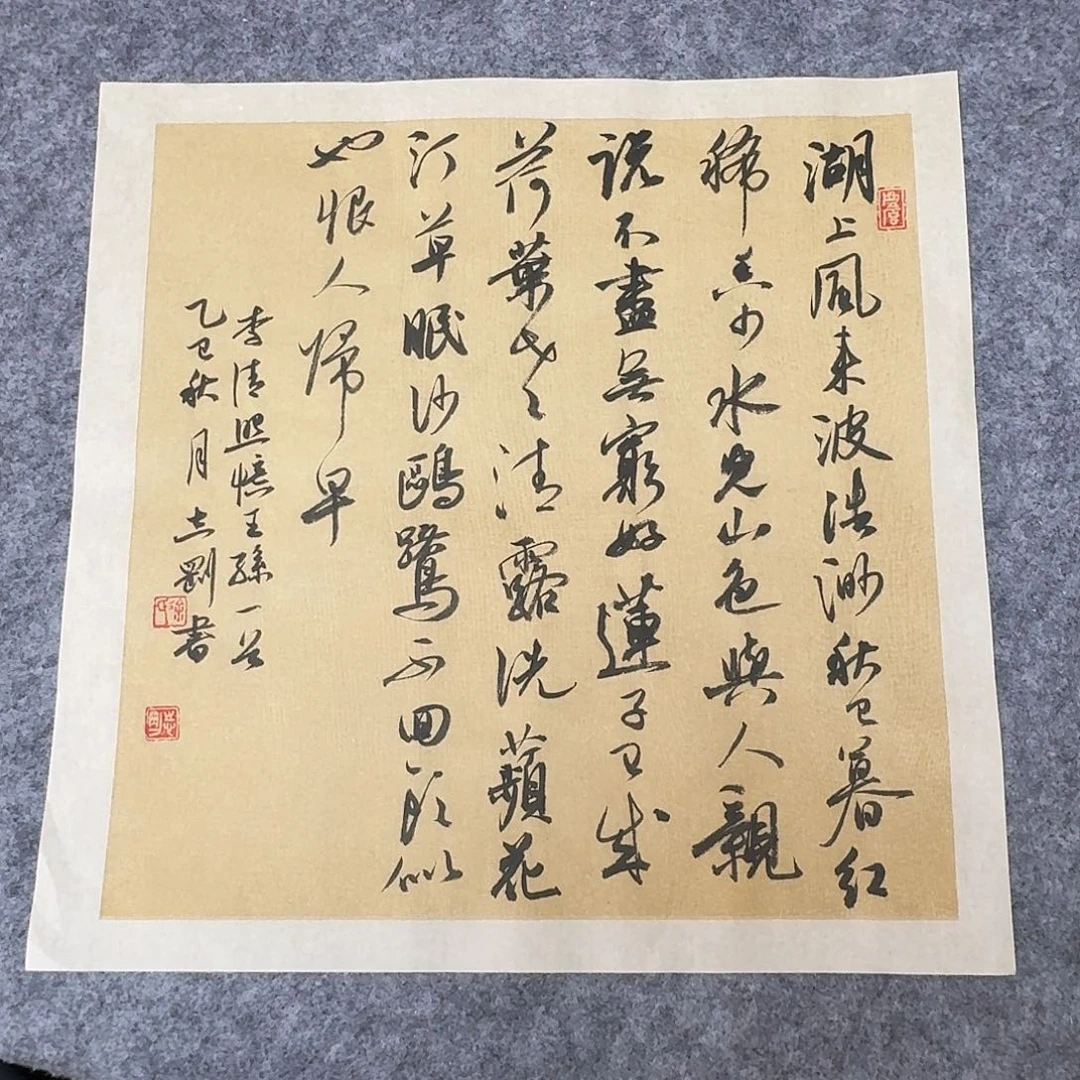 湖上風来波浩渺秋已暮红
稀香少水光山色與人親
説不盡無窮好蓮子已成
荷葉老清露洗蘋花
汀草眠沙鷗鷺不回頭似
也恨人歸早
李清照憶王孫一首
乙巳秋月志剛書